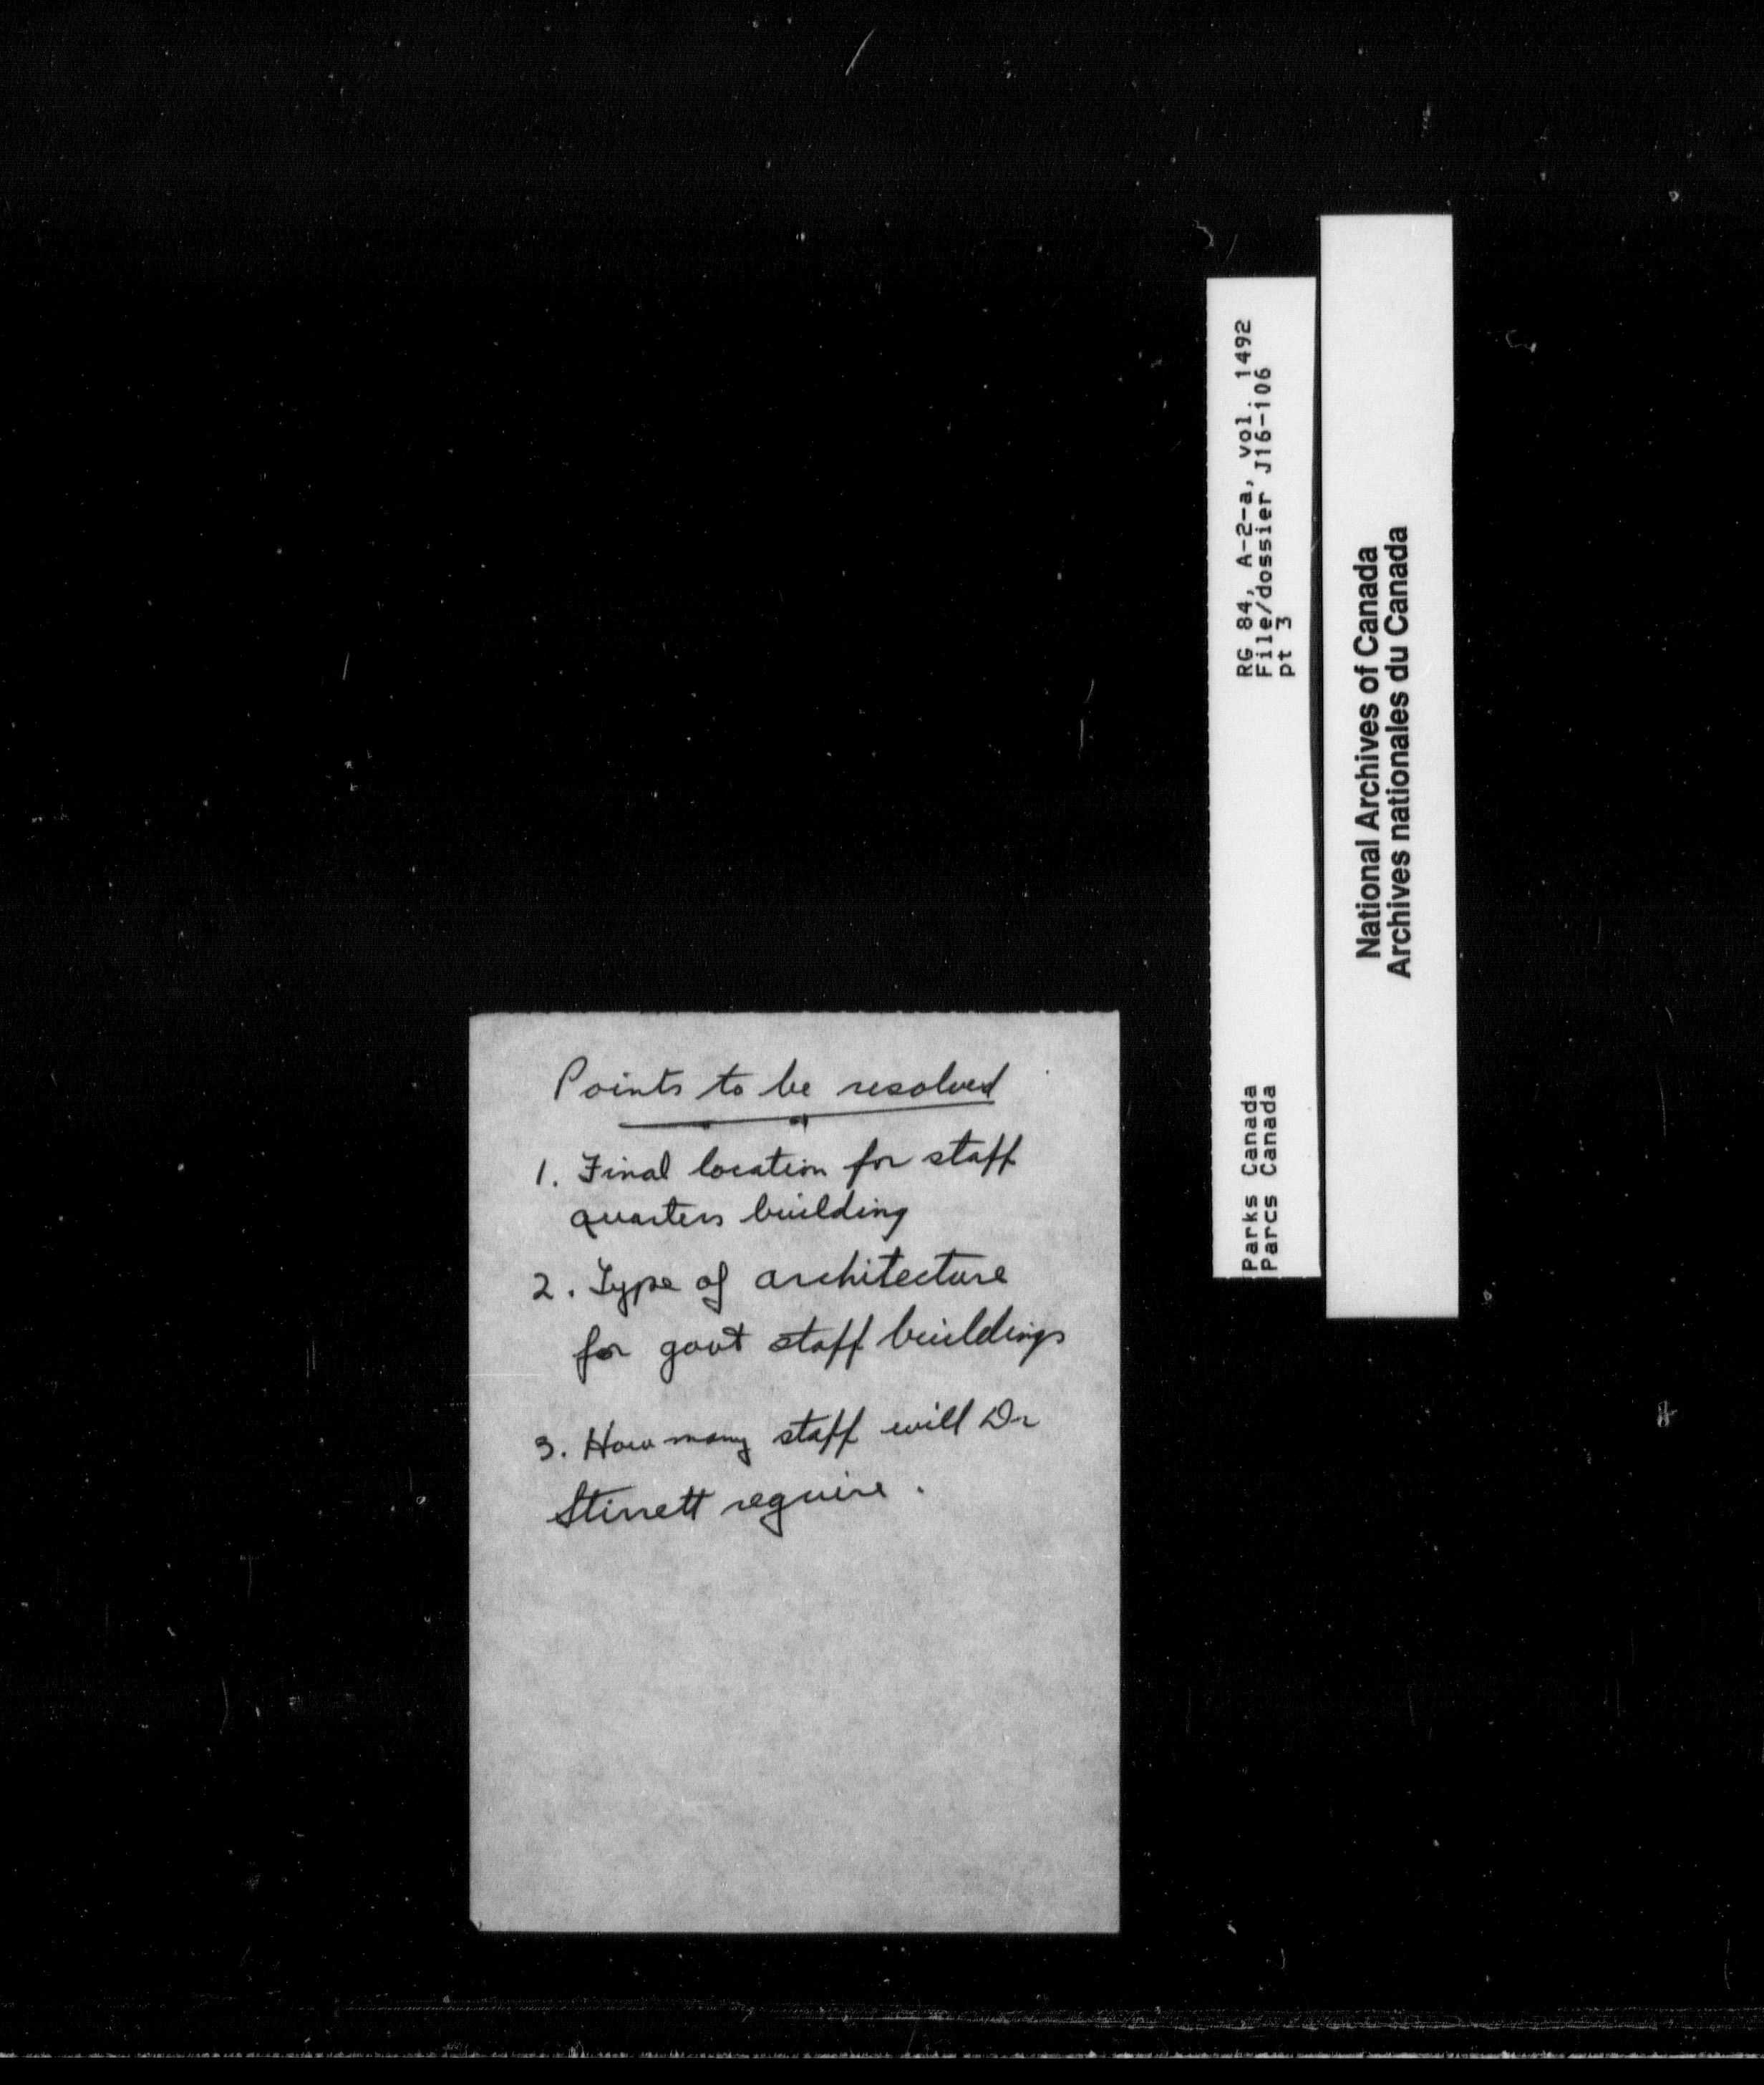 RG 84, A-2-a, vol. 1492
File/dossier J16-106
pt 3
Parks Canada
Parcs Canada
National Archives of Canada
Archives nationales du Canada
Points to be resolved
1. Final location for staff
quarters building
2. Type of architecture
for govt staff buildings
3. How many staff will Dr
Stirrett require.